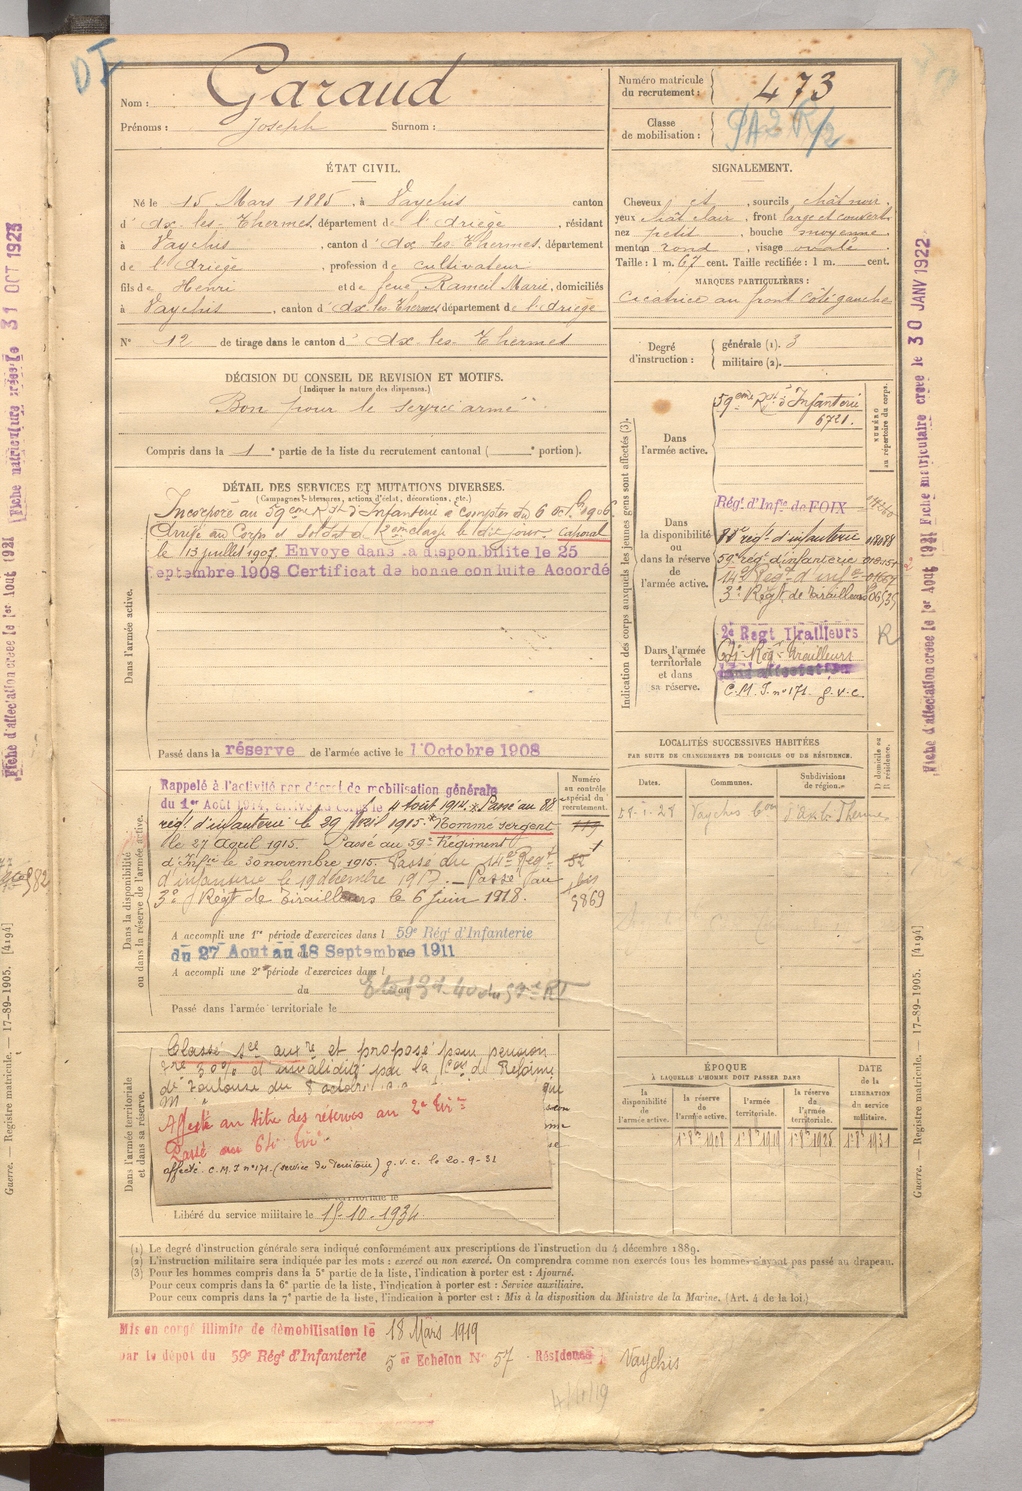 Nom : Garaud
Prénoms : Joseph Surnom :
Numéro matricule du recrutement : 473
Classe de mobilisation :
ÉTAT CIVIL.
Né le 15 Mars 1885, à Vaychis canton
d'Ax-les-Thermes, département de l'Ariège, résidant
à Vaychis, canton d'Ax-les-Thermes, département
de l'Ariège, profession de cultivateur
fils de Henri et de feue Rameil Marie, domiciliés
à Vaychis, canton d'Ax-les-Thermes, département de l'Ariège
N° 12 de tirage dans le canton d'Ax-les-Thermes
SIGNALEMENT.
Cheveux et sourcils chât noir
yeux chât clair, front large et couvert
nez petit, bouche moyenne
menton rond, visage ovale
Taille : 1 m. 67 cent. Taille rectifiée : 1 m. cent.
MARQUES PARTICULIÈRES :
Cicatrice au front côté gauche
Degré d'instruction : générale (1). 3
militaire (2).
DÉCISION DU CONSEIL DE REVISION ET MOTIFS.
(Indiquer la nature des dispenses.)
Bon pour le service armé
Compris dans la 1e partie de la liste du recrutement cantonal ( e portion).
DÉTAIL DES SERVICES ET MUTATIONS DIVERSES.
(Campagnes, blessures, actions d'éclat, décorations, etc.)
Dans l'armée active.
Incorporé au 59eme Rgt d'Infanterie à compter du 6 8bre 1906
Arrivé au Corps et soldat de 2eme classe le dit jour. Caporal
le 13 juillet 1907. Envoye dans la disponibilite le 25
eptembre 1908 Certificat de bonne conduite Accordé
Passé dans la réserve de l'armée active le 1 Octobre 1908
Indication des corps auxquels les jeunes gens sont affectés (3).
NUMÉRO au répertoire du corps.
Dans l'armée active.
59eme Rgt d'Infanterie
6721.
Dans la disponibilité ou dans la réserve de l'armée active.
Régt d'Infie de FOIX
88e régt d'infanterie
59e régt d'infanterie
14e Régt d'infie
3e Régt de Tirailleurs
Dans l'armée territoriale et dans sa réserve.
2e Regt Tirailleurs
64e Rgt Tirailleurs
C.M.I. n° 171 g.v.c.
R
LOCALITÉS SUCCESSIVES HABITÉES
PAR SUITE DE CHANGEMENTS DE DOMICILE OU DE RÉSIDENCE.
Dates. Communes. Subdivisions de région. D domicile ou R résidence.
Vaychis d'Ax les Thermes
Dans la disponibilité ou dans la réserve de l'armée active.
Numéro au contrôle spécial du recrutement.
Rappelé à l'activité par décret de mobilisation générale
du 1er Août 1914, arrivé au corps le 4 Août 1914. Passé au 88
régt d'infanterie le 29 Avril 1915. Nommé sergent
le 27 Août 1915. Passé au 59e Régiment
d'Infie le 30 novembre 1915. Passé du 14e Régt
d'infanterie le 19 décembre 1917. Passé au
3e Régt de Tirailleurs le 6 juin 1918.
A accompli une 1re période d'exercices dans l 59e Rég d'Infanterie
du 27 Aout au 18 Septembre 1911
A accompli une 2e période d'exercices dans l
du au
Passé dans l'armée territoriale le
Dans l'armée territoriale et dans sa réserve.
Classé sce auxre et proposé pour pension
30% et invalidité par la Con de Réforme
de Toulouse du 8
Affecté au titre des réserves au 2e Tir
Passé au 64e Tir
affecté C.M.I n° 171. (service du Territoire) g.v.c. le 20-9-31
Libéré du service militaire le 15-10-1934
ÉPOQUE
À LAQUELLE L'HOMME DOIT PASSER DANS
la disponibilité de l'armée active.
la réserve de l'armée active.
l'armée territoriale.
la réserve de l'armée territoriale.
DATE de la LIBÉRATION du service militaire.
1 8bre 1908
(1) Le degré d'instruction générale sera indiqué conformément aux prescriptions de l'instruction du 4 décembre 1889.
(2) L'instruction militaire sera indiquée par les mots : exercé ou non exercé. On comprendra comme non exercés tous les hommes n'ayant pas passé au drapeau.
(3) Pour les hommes compris dans la 5e partie de la liste, l'indication à porter est : Ajourné.
Pour ceux compris dans la 6e partie de la liste, l'indication à porter est : Service auxiliaire.
Pour ceux compris dans la 7e partie de la liste, l'indication à porter est : Mis à la disposition du Ministre de la Marine. (Art. 4 de la loi.)
Mis en congé illimité de démobilisation le 18 Mars 1919
par le dépot du 59e Rég d'Infanterie 5e Echelon N° 57 Résidence Vaychis
Fiche d'affectation creee le 1er Aout 1921 Fiche matriculaire creee le 30 JANV 1922
Guerre. — Registre matricule. — 17-89-1905. [4194]
Fiche d'affectation creee le 1er Aout 1921 Fiche matriculaire creee le 31 OCT 1923
Guerre. — Registre matricule. — 17-89-1905. [4194]